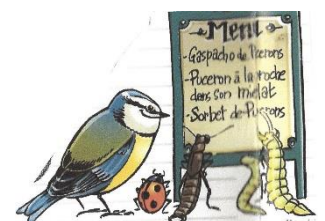 Menu
-Gaspacho de Pucerons
-Puceron à la roche
dans son miellat
-Sorbet de Pucerons